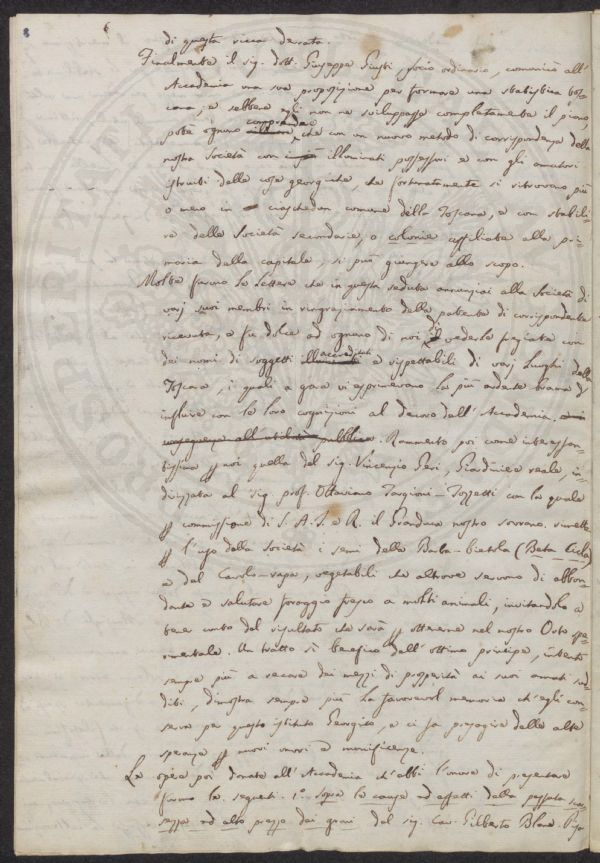 8
6
di questa ricca derrata.
Finalmente il sig. dott. Giuseppe Giusti socio ordinario, comunicò all'
Accademia una sua proposizione per formare una statistica tos-
cana; e sebbene egli non ne sviluppasse completamente il piano,
potè ognuno comprendere, che con un nuovo metodo di corrispondenza della
nostra Società con illuminati possessori e con gli amatori
istruiti delle cose georgiche, che fortunatamente si ritrovano più
o meno in ciaschedun comune della Toscana, e con stabili-
re delle Società secondarie, o colonie affiliate alla pri-
maria della capitale, si può giungere allo scopo.
Molte furono le lettere che in questa seduta annunziai alla Società di
varj suoi membri in ringraziamento della patente di corrispondente
ricevuta, e fu dolce ad ognuno di noi il vederle fregiate con
dei nomi di soggetti accreditati e rispettabili di varj luoghi della
Toscana, i quali a gara vi esprimevano la più ardente brama di
influire con le loro cognizioni al decoro dell'Accademia.
Rammento poi come interessan-
tissima per noi quella del sig. Vincenzio Geri, Giardiniere reale, in-
dirizzata al sig. prof. Ottaviano Targioni-Tozzetti con la quale
per commissione di S. A. I. e R. il Granduca nostro sovrano, rimette
per l'uso della Società i semi della Barba-bietola (Beta Cicla)
e del Cavolo-rapa, vegetabili che altrove servono di abbon-
dante e salutare foraggio fresco a molti animali, invitandolo a
tener conto del risultato che sarà per ottenerne nel nostro Orto spe-
rimentale. Un tratto sì benefico dell'ottimo principe, intento
sempre più a recare dei mezzi di prosperità ai suoi amati sud-
diti, dimostra sempre più la favorevol memoria ch'egli con-
serva per questo istituto Georgico, e ci fa presagire delle alte
speranze per nuovi onori e munificenze.
Le opere poi donate all'Accademia ch'ebbi l'onore di presentare
furono le seguenti. 1°. sopra le cause ed effetti della passata scar-
sezza ed alto prezzo dei grani del sig. Cav. Gilberto Blane.